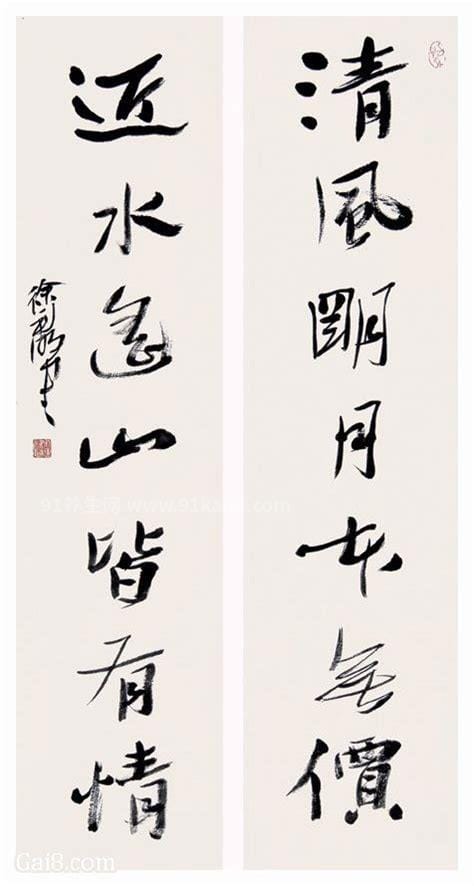 清風朙月本無價
近水遠山皆有情
91养生网 www.91kan
Gai8.com